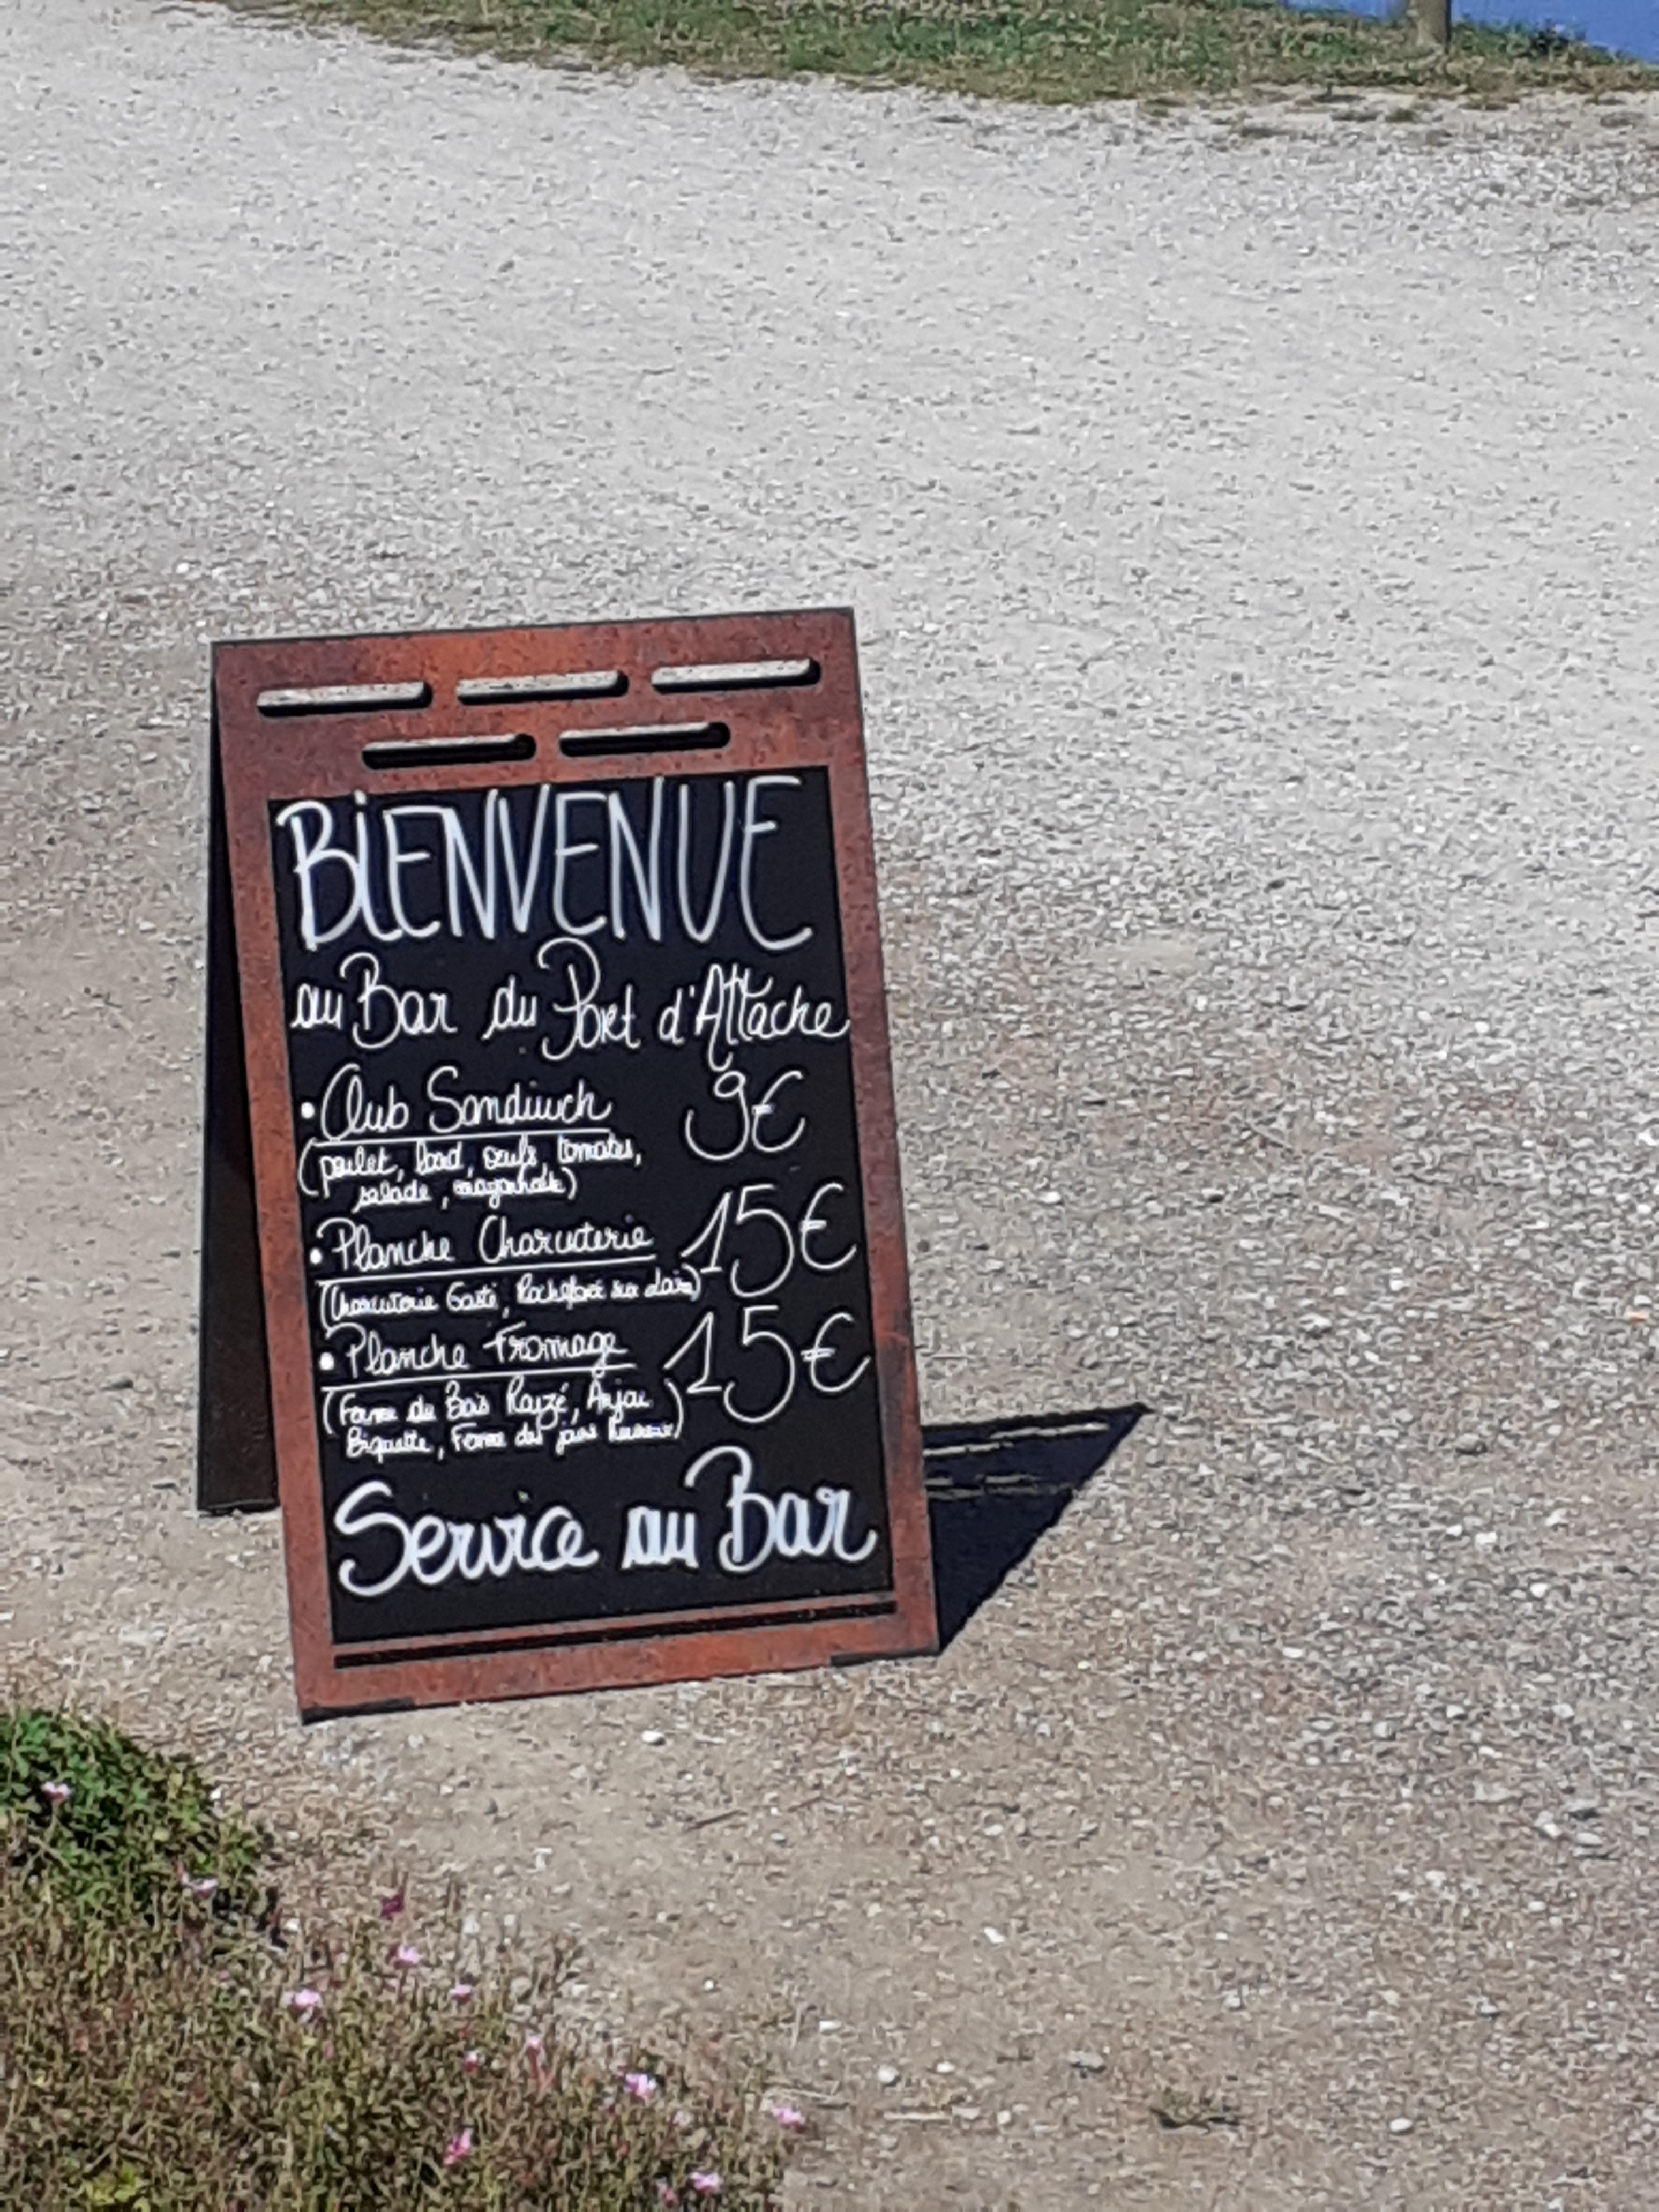 BiENVENUE
au Bar du Port d'Attache
• Club Sandwich 9€
(poulet, lard, oeufs, tomates,
salade, mayonnaise)
• Planche Charcuterie 15€
(Charcuterie Gasté, Rochefort sur Loire)
• Planche Fromage 15€
(Ferme du Bois Rayzé, Anjou
Biquette, Ferme des jours heureux)
Service au Bar